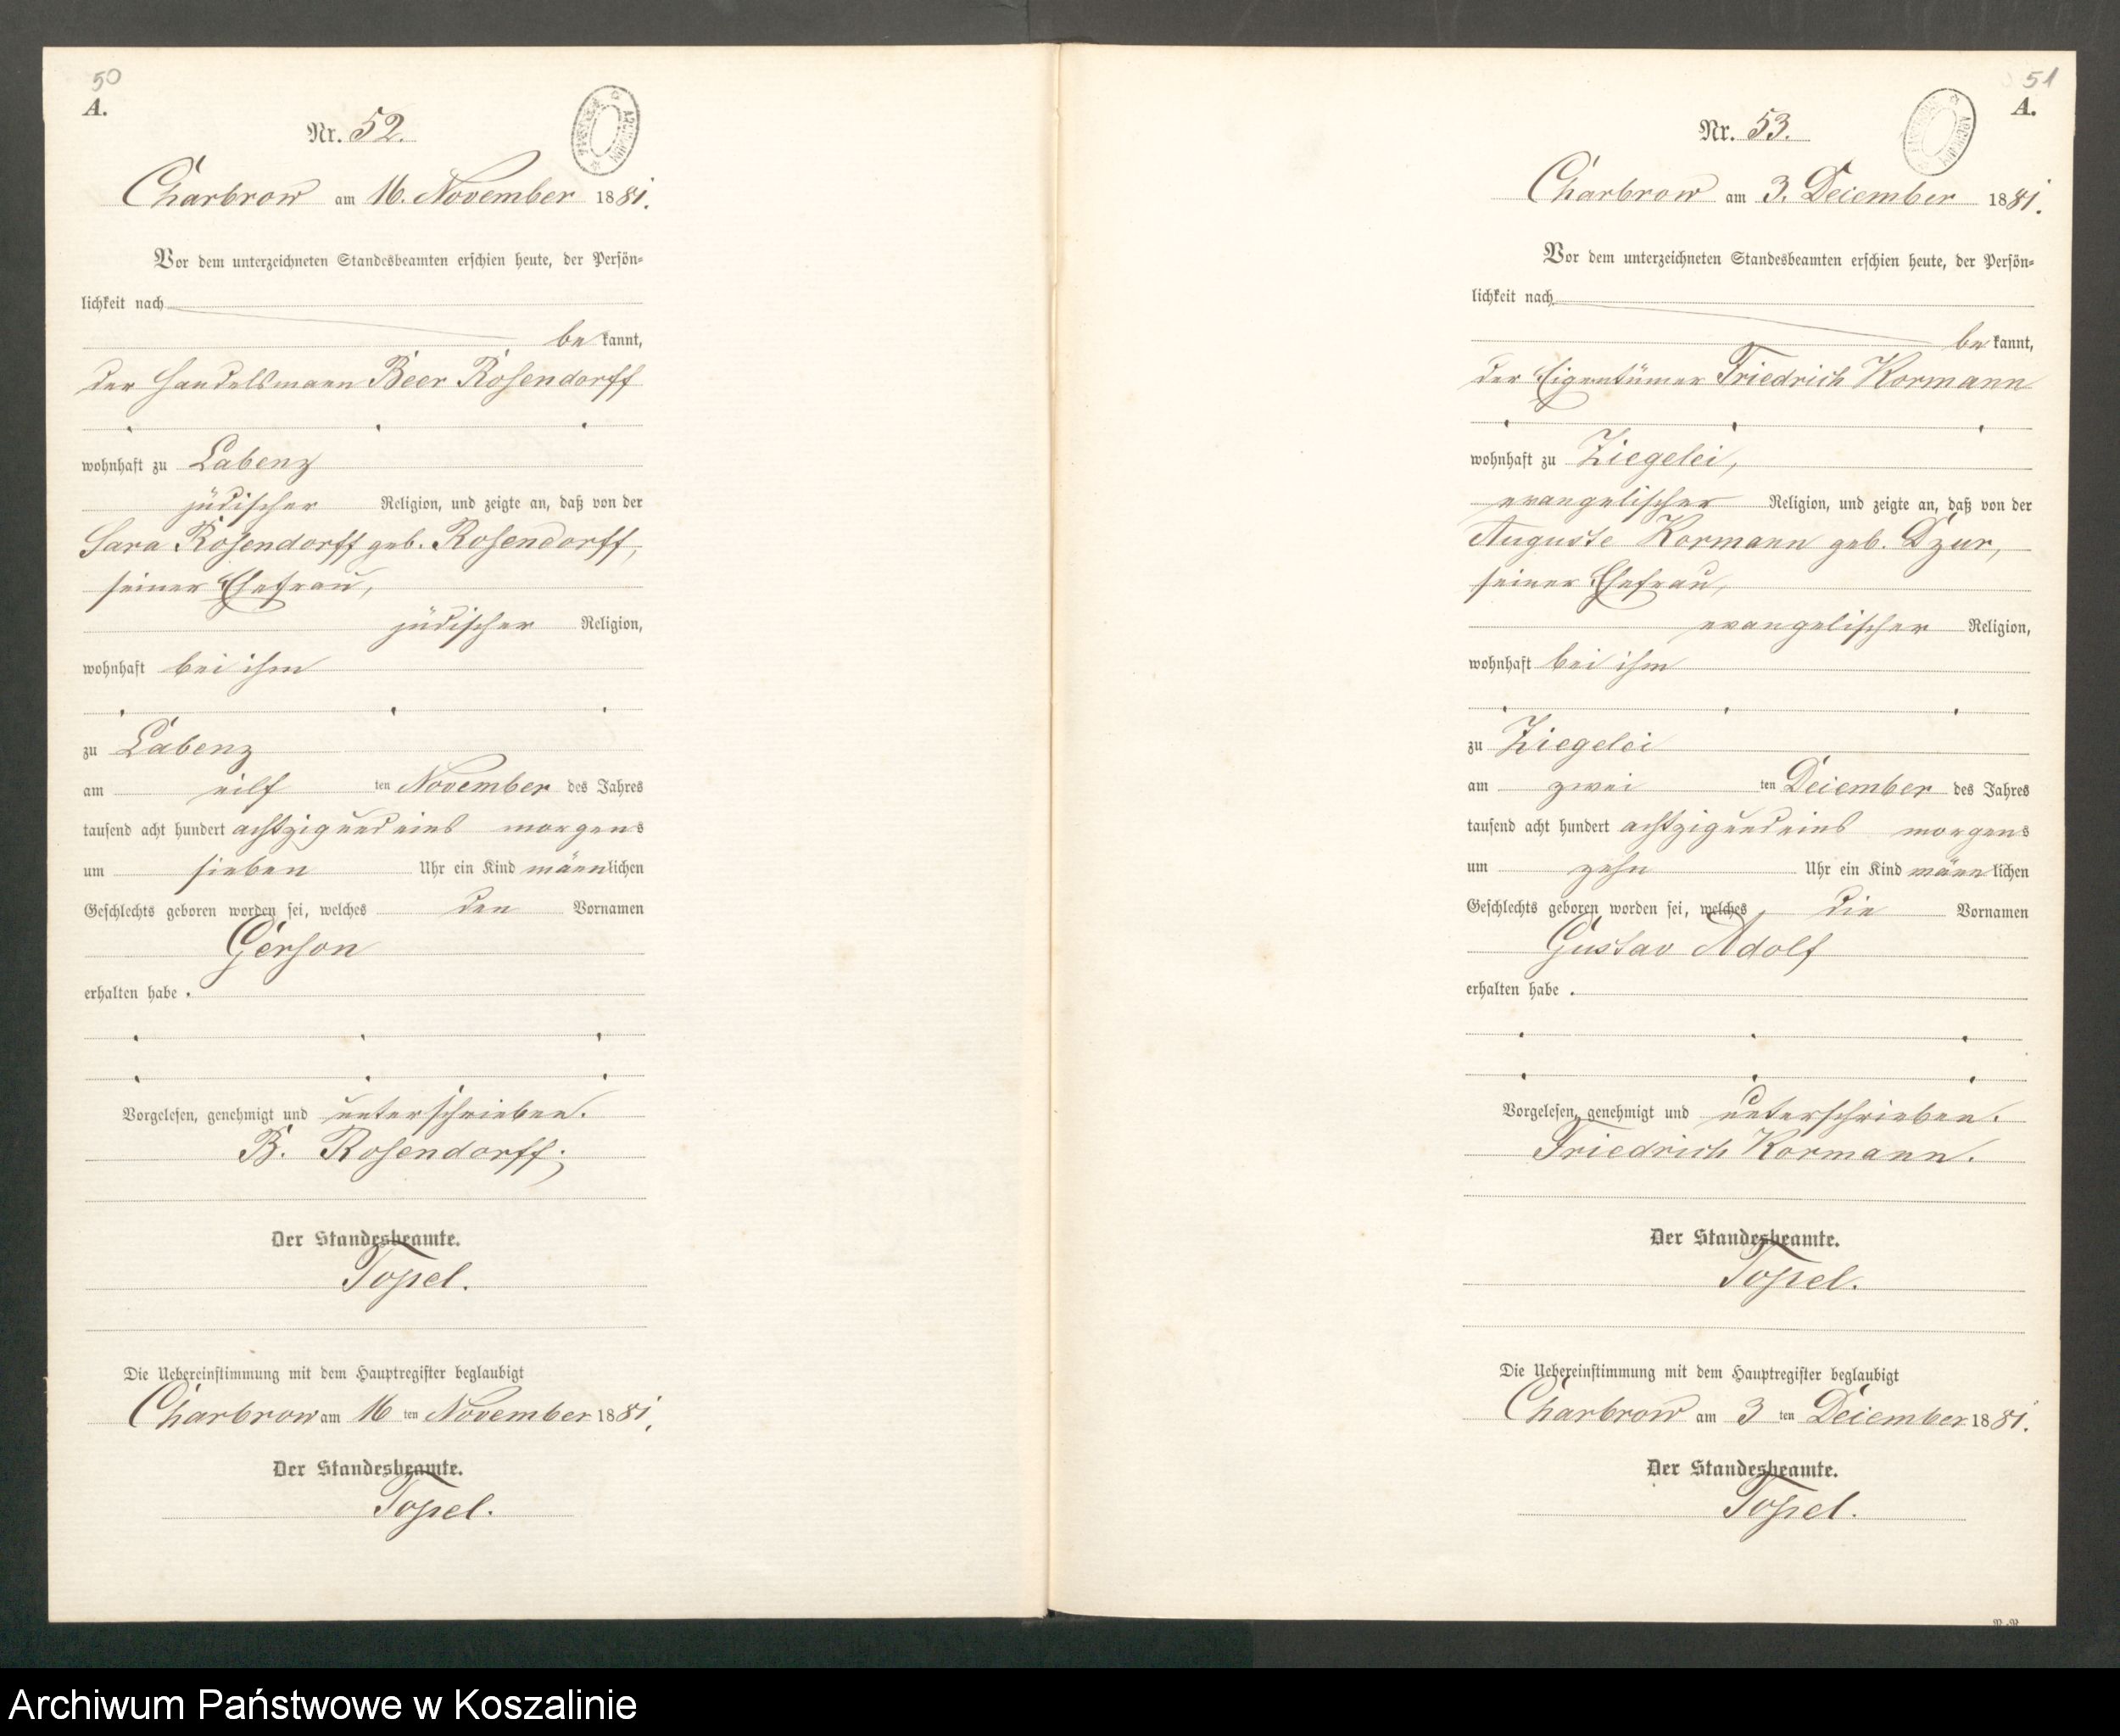 50
A.
Nr. 52.
Charbrow am 16. November 1881.
Vor dem unterzeichneten Standesbeamten erschien heute, der Persön-
lichkeit nach
be kannt,
der Handelsmann Beer Rosendorff
wohnhaft zu Labenz
jüdischer Religion, und zeigte an, daß von der
Sara Rosendorff geb. Rosendorff,
seiner Ehefrau,
jüdischer Religion,
wohnhaft bei ihm
zu Labenz
am eilf ten November des Jahres
tausend acht hundert achtzig und eins morgens
um sieben Uhr ein Kind männlichen
Geschlechts geboren worden sei, welches den Vornamen
Gerson
erhalten habe.
Vorgelesen, genehmigt und unterschrieben.
B. Rosendorff.
Der Standesbeamte.
Topel.
Die Uebereinstimmung mit dem Hauptregister beglaubigt
Charbrow am 16 ten November 1881.
Der Standesbeamte.
Topel.
51
A.
Nr. 53.
Charbrow am 3. December 1881.
Vor dem unterzeichneten Standesbeamten erschien heute, der Persön-
lichkeit nach
be kannt,
der Eigentümer Friedrich Kormann
wohnhaft zu Ziegelei,
evangelischer Religion, und zeigte an, daß von der
Auguste Kormann geb. Dzur,
seiner Ehefrau,
evangelischer Religion,
wohnhaft bei ihm
zu Ziegelei
am zwei ten December des Jahres
tausend acht hundert achtzig und eins morgens
um zehn Uhr ein Kind männlichen
Geschlechts geboren worden sei, welches die Vornamen
Gustav Adolf
erhalten habe.
Vorgelesen, genehmigt und unterschrieben.
Friedrich Kormann.
Der Standesbeamte.
Topel.
Die Uebereinstimmung mit dem Hauptregister beglaubigt
Charbrow am 3 ten December 1881.
Der Standesbeamte.
Topel.
Archiwum Państwowe w Koszalinie